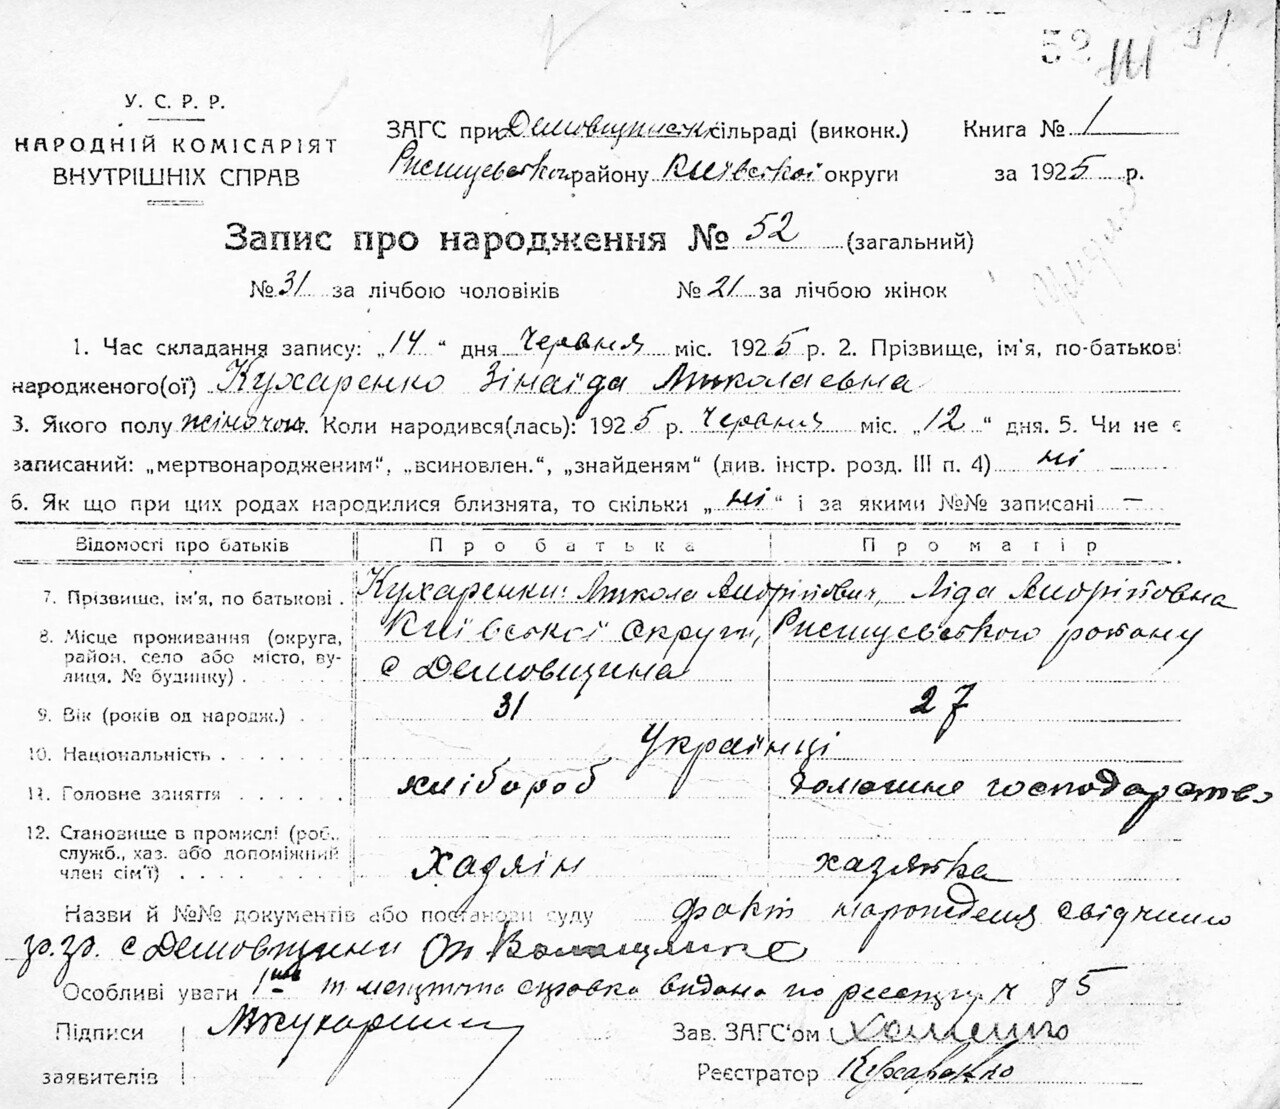 52 III 51
У. С. Р. Р.
НАРОДНІЙ КОМІСАРІЯТ
ВНУТРІШНІХ СПРАВ
ЗАГС при Демовщинськ. сільраді (виконк.)
Ржищевськог. району Київської округи
Книга № 1
за 1925 р.
Запис про народження № 52 (загальний)
№ 31 за лічбою чоловіків № 21 за лічбою жінок
1. Час складання запису: „14" дня Червня міс. 1925 р. 2. Прізвище, ім'я, по-батькові
народженого(ої) Кухаренко Зінаїда Миколаевна
3. Якого полу жіночог. Коли народився(лась): 1925 р. Червня міс. „12" дня. 5. Чи не є
записаний: „мертвонародженим", „всиновлен.", „знайденям" (див. інстр. розд. III п. 4) ні
6. Як що при цих родах народилися близнята, то скільки „ні" і за якими №№ записані —
Відомості про батьків Про батька Про матір
7. Прізвище, ім'я, по батькові . Кухаренки: Микола Андрійович, Ліда Андріївна
8. Місце проживання (округа, район, село або місто, вулиця, № будинку) . Київської Округи, Ржищевського району
с Демовщина
9. Вік (років од народж.) . . 31 27
10. Національність . . . . . . Українці
11. Головне заняття . . . . . . хлібороб домашнє господарство
12. Становище в промислі (роб., служб., хаз. або допоміжний член сім'ї) . . . . . . . Хазяін хазяйка
Назви й №№ документів або постанови суду факт народженя свідчимо
гр.гр. с Демовщини
Особливі уваги справка видана по № 85
Підписи
заявителів
Зав. ЗАГС'ом Хоменко
Реєстратор Кухаренко